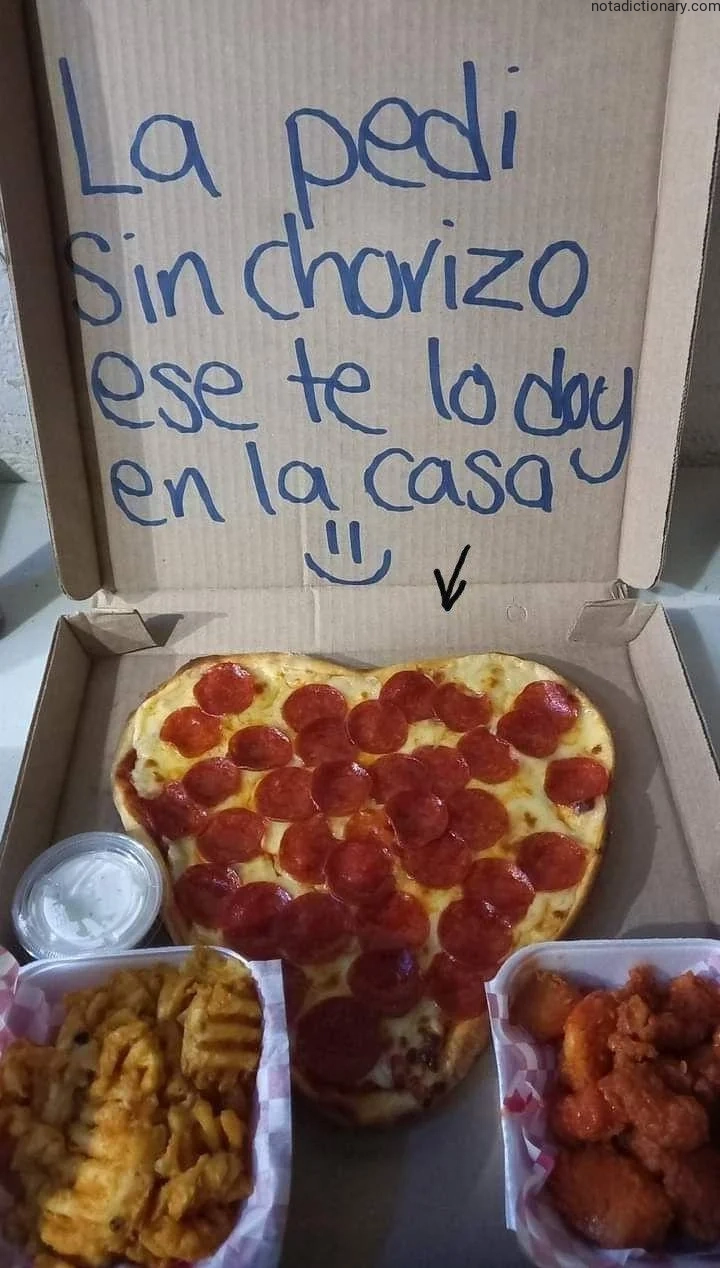 notadictionary.com
La pedi
sin chorizo
ese te lo doy
en la casa